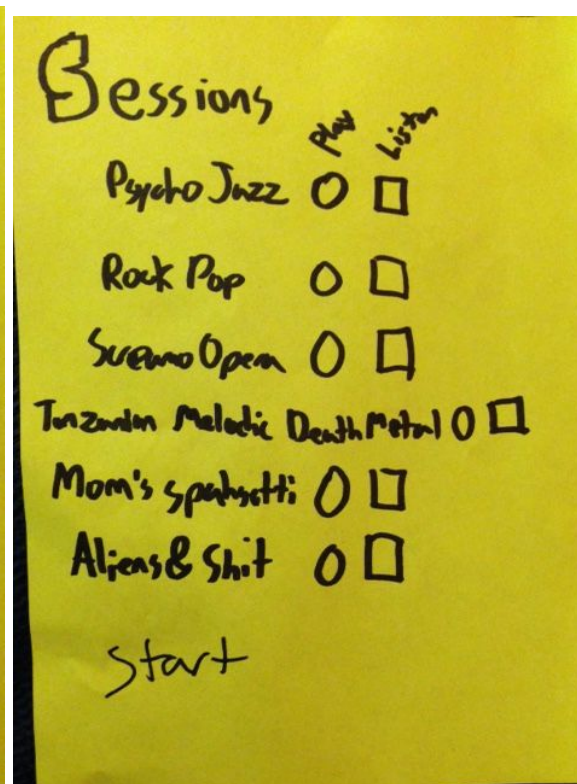 Sessions
Play Listen
Psycho Jazz
Rock Pop
Screamo Opera
Tanzanian Melodic Death Metal
Mom's spahgetti
Aliens & Shit
Start